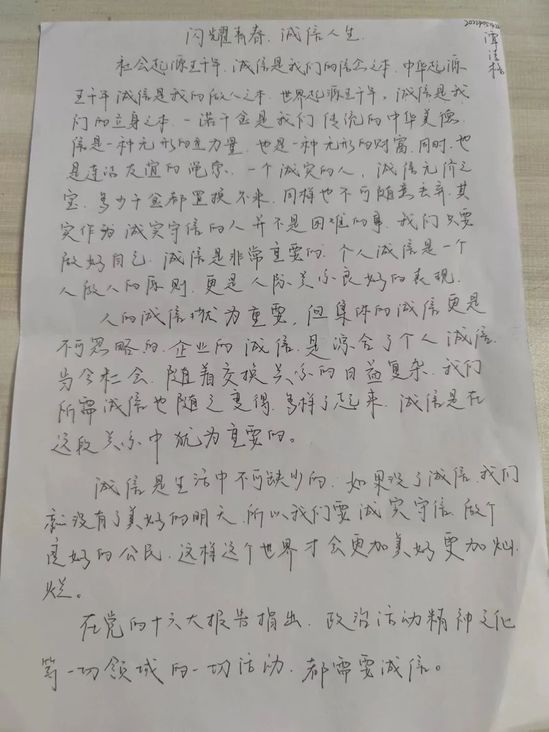 闪耀青春.诚信人生.
社会起源五千年,诚信是我们的信念之本.中华起源
五千年诚信是我的做人之本.世界起源五千年.诚信是我
们的立身之本.一诺千金是我们传统的中华美德.
信是一种无形的力量,也是一种无形的财富.同时.也
是连结友谊的绳索.一个诚实的人,诚信无价之
宝,多少千金都置换不来,同样也不可随意丢弃.其
实作为诚实守信的人并不是困难的事.我们只要
做好自己.诚信是非常重要的.个人诚信是一个
人做人的原则.更是人际关系良好的表现.
人的诚信尤为重要,但集体的诚信更是
不可忽略的.企业的诚信.是综合了个人诚信.
当今社会.随着交换关系的日益复杂.我们
所需诚信也随之变得多样了起来.诚信是在
这段关系中犹为重要的。
诚信是生活中不可缺少的.如果没了诚信.我们
就没有了美好的明天.所以我们要诚实守信.做个
良好的公民.这样这个世界才会更加美好更加灿
烂。
在党的十六大报告指出.政治活动精神文化
等一切领域的一切活动.都需要诚信。